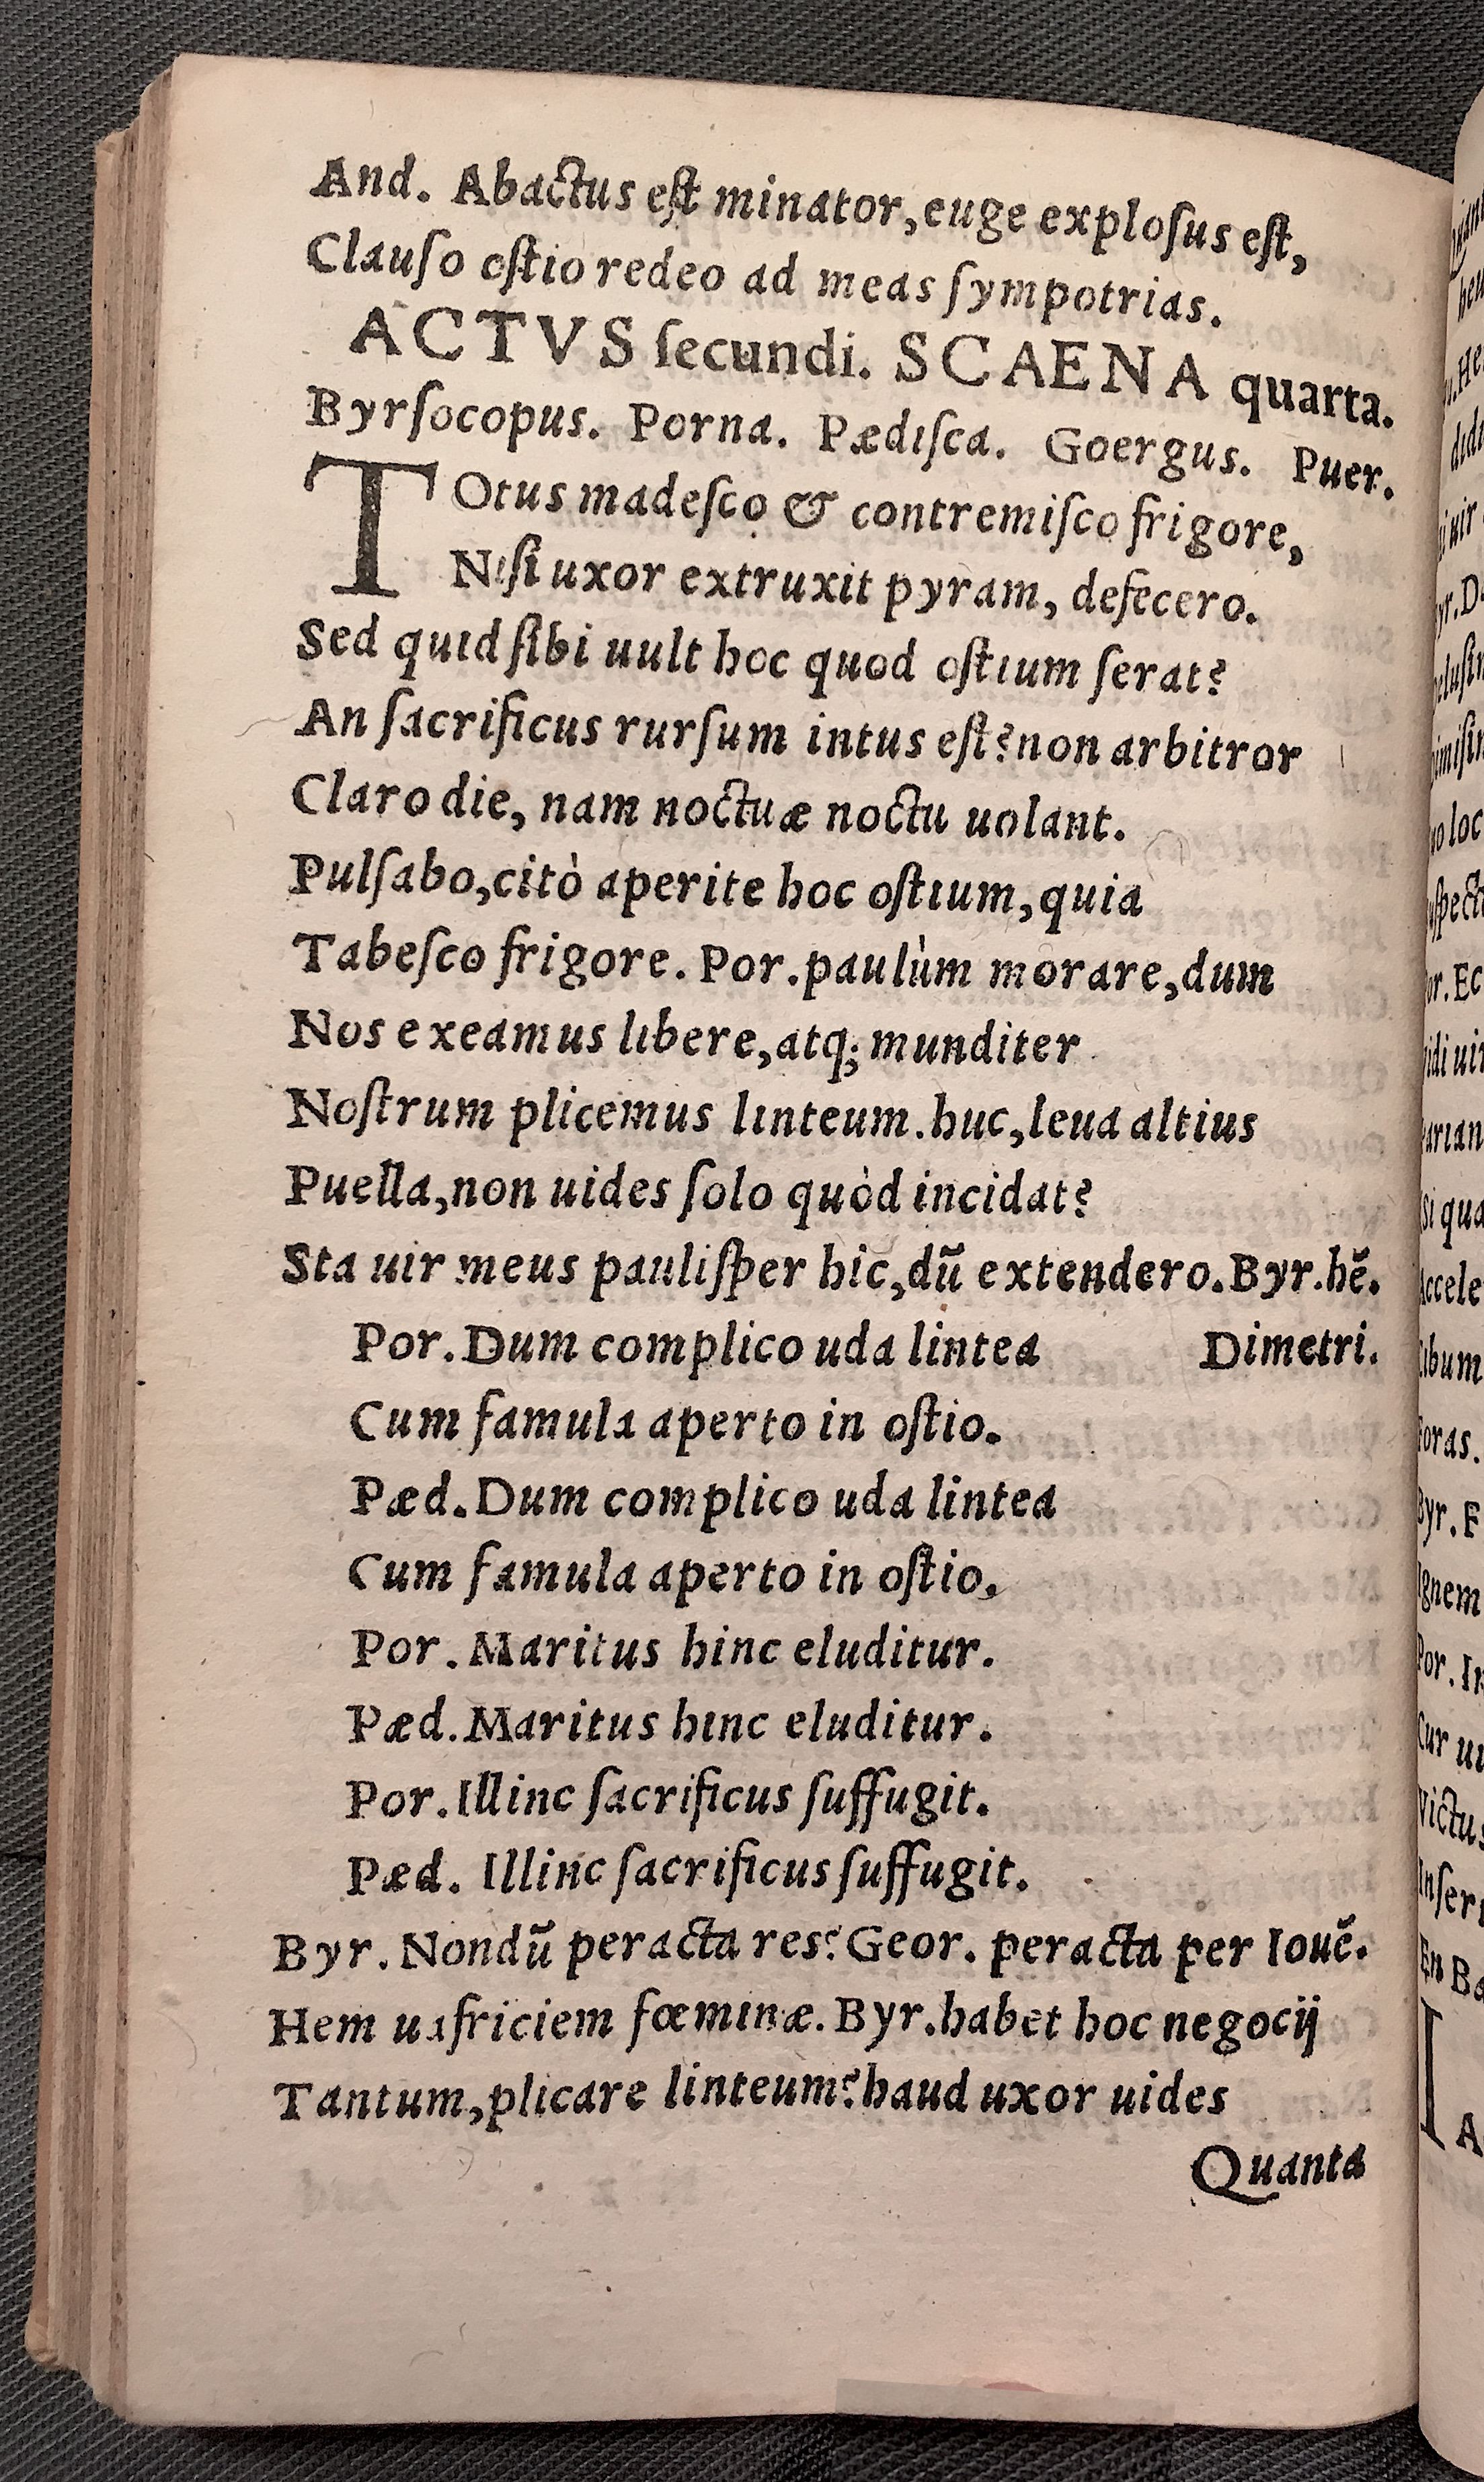 And. Abactus eſt minator, euge exploſus eſt,
Clauſo oſtio redeo ad meas ſympotrias.
ACTVS ſecundi. SCAENA quarta.
Byrſocopus. Porna. Pædiſca. Goergus. Puer.
TOtus madeſco & contremiſco frigore,
Niſi uxor extruxit pyram, defecero.
Sed quid ſibi uult hoc quod oſtium ſerat?
An ſacrificus rurſum intus eſt? non arbitror
Claro die, nam noctuæ noctu uolant.
Pulſabo, citò aperite hoc oſtium, quia
Tabeſco frigore. Por. paulùm morare, dum
Nos exeamus libere, atq; munditer
Noſtrum plicemus linteum. huc, leua altius
Puella, non uides ſolo quòd incidat?
Sta uir meus pauliſper hic, dũ extendero. Byr. hẽ.
Por. Dum complico uda lintea Dimetri.
Cum famula aperto in oſtio.
Pæd. Dum complico uda lintea
Cum famula aperto in oſtio.
Por. Maritus hinc eluditur.
Pæd. Maritus hinc eluditur.
Por. Illinc ſacrificus ſuffugit.
Pæd. Illinc ſacrificus ſuffugit.
Byr. Nondũ peracta res? Geor. peracta per Iouẽ.
Hem uafriciem fœminæ. Byr. habet hoc negocij
Tantum, plicare linteum? haud uxor uides
Quanta